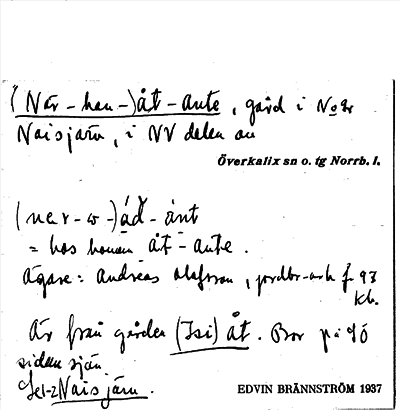 (När-han-)åt-ante, gård i Nedr
Naisjärv, i NV delen av
Överkalix sn o. tg Norrb. l.
(nær-w-)åd-ánt
= hos honom åt-ante.
Ägare: Andreas Olofsson, jordbr-arb f 93
Är från gården (Isi) åt. Bor på SÖ
sidan sjön
Naisjärv.
EDVIN BRÄNNSTRÖM 1937